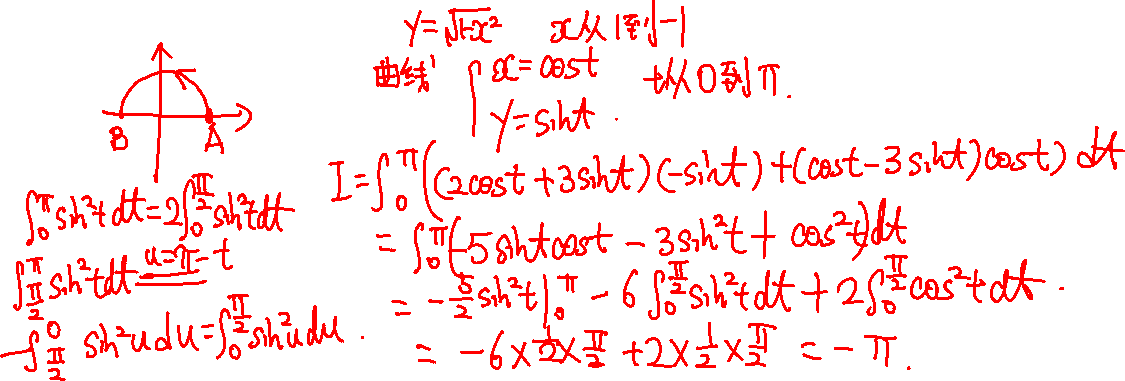 y=√1-x² x从1到-1
曲线 { x=cost t从0到π.
y=sint.
B A
I=∫₀^π((2cost+3sint)(-sint)+(cost-3sint)cost)dt
=∫₀^π(-5sintcost-3sin²t+cos²t)dt
=-5/2 sin²t|₀^π-6∫₀^(π/2)sin²tdt+2∫₀^(π/2)cos²tdt.
=-6×1/2×π/2+2×1/2×π/2=-π.
∫₀^π sin²tdt=2∫₀^(π/2)sin²tdt
∫_(π/2)^π sin²tdt u=π-t
-∫_(π/2)^0 sin²udu=∫₀^(π/2)sin²udu.